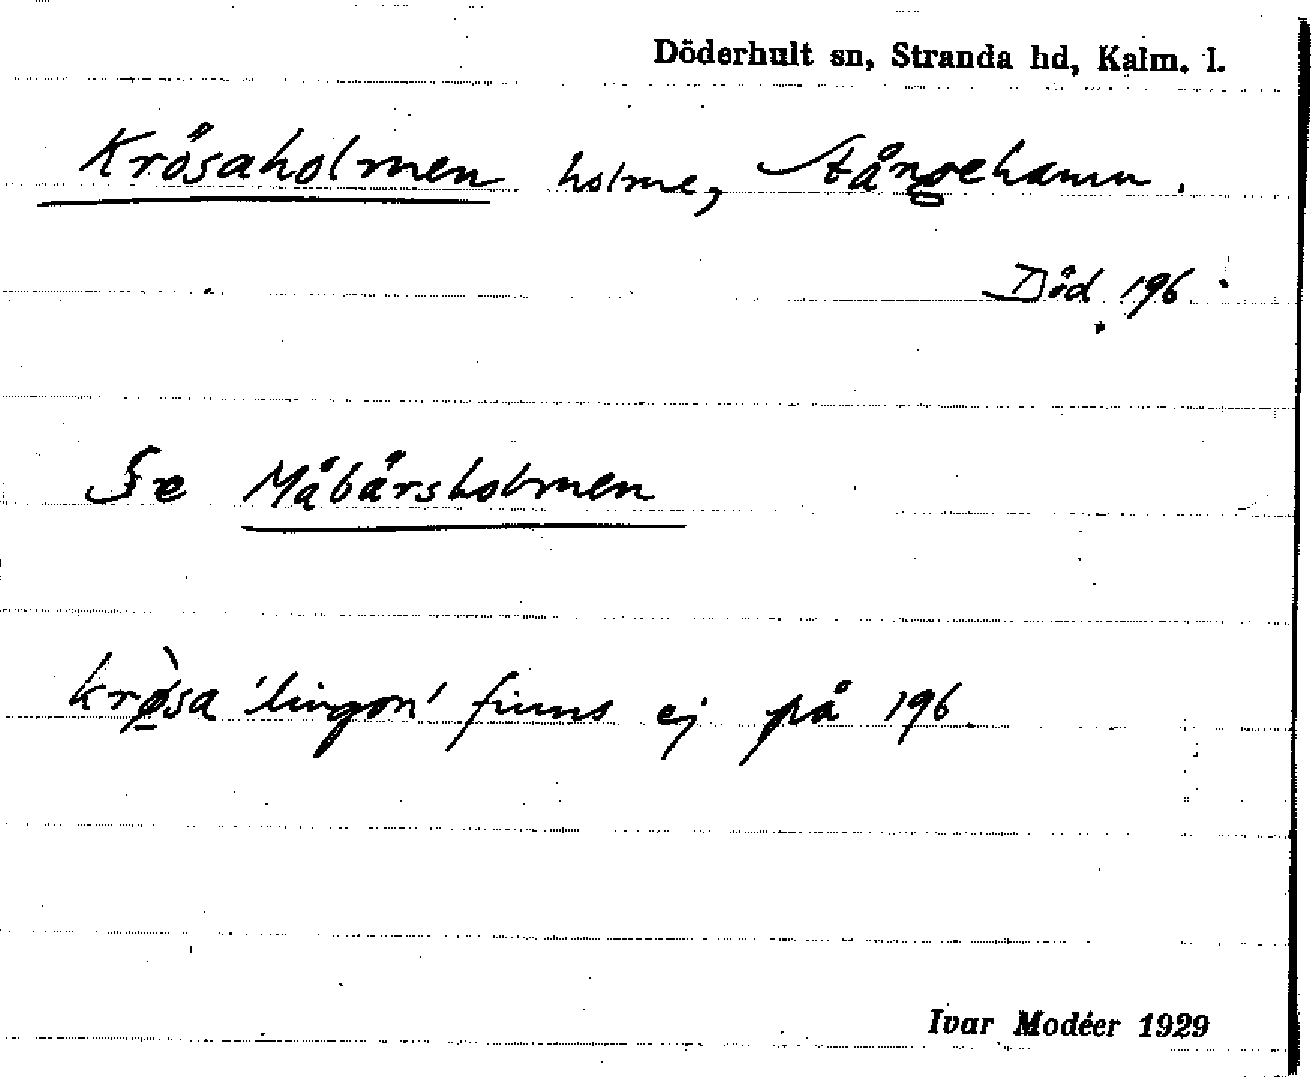 Döderhult sn, Stranda hd, Kalm. l.
Krösaholmen holme, Stångehamn.
Död 196
Se Måbärsholmen
krø̀sa 'lingon' finns ej på 196
Ivar Modéer 1929